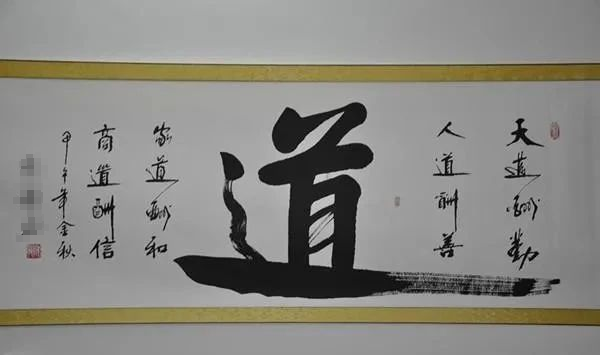 天道酬勤
人道酬善
道
家道酬和
商道酬信
甲午年金秋